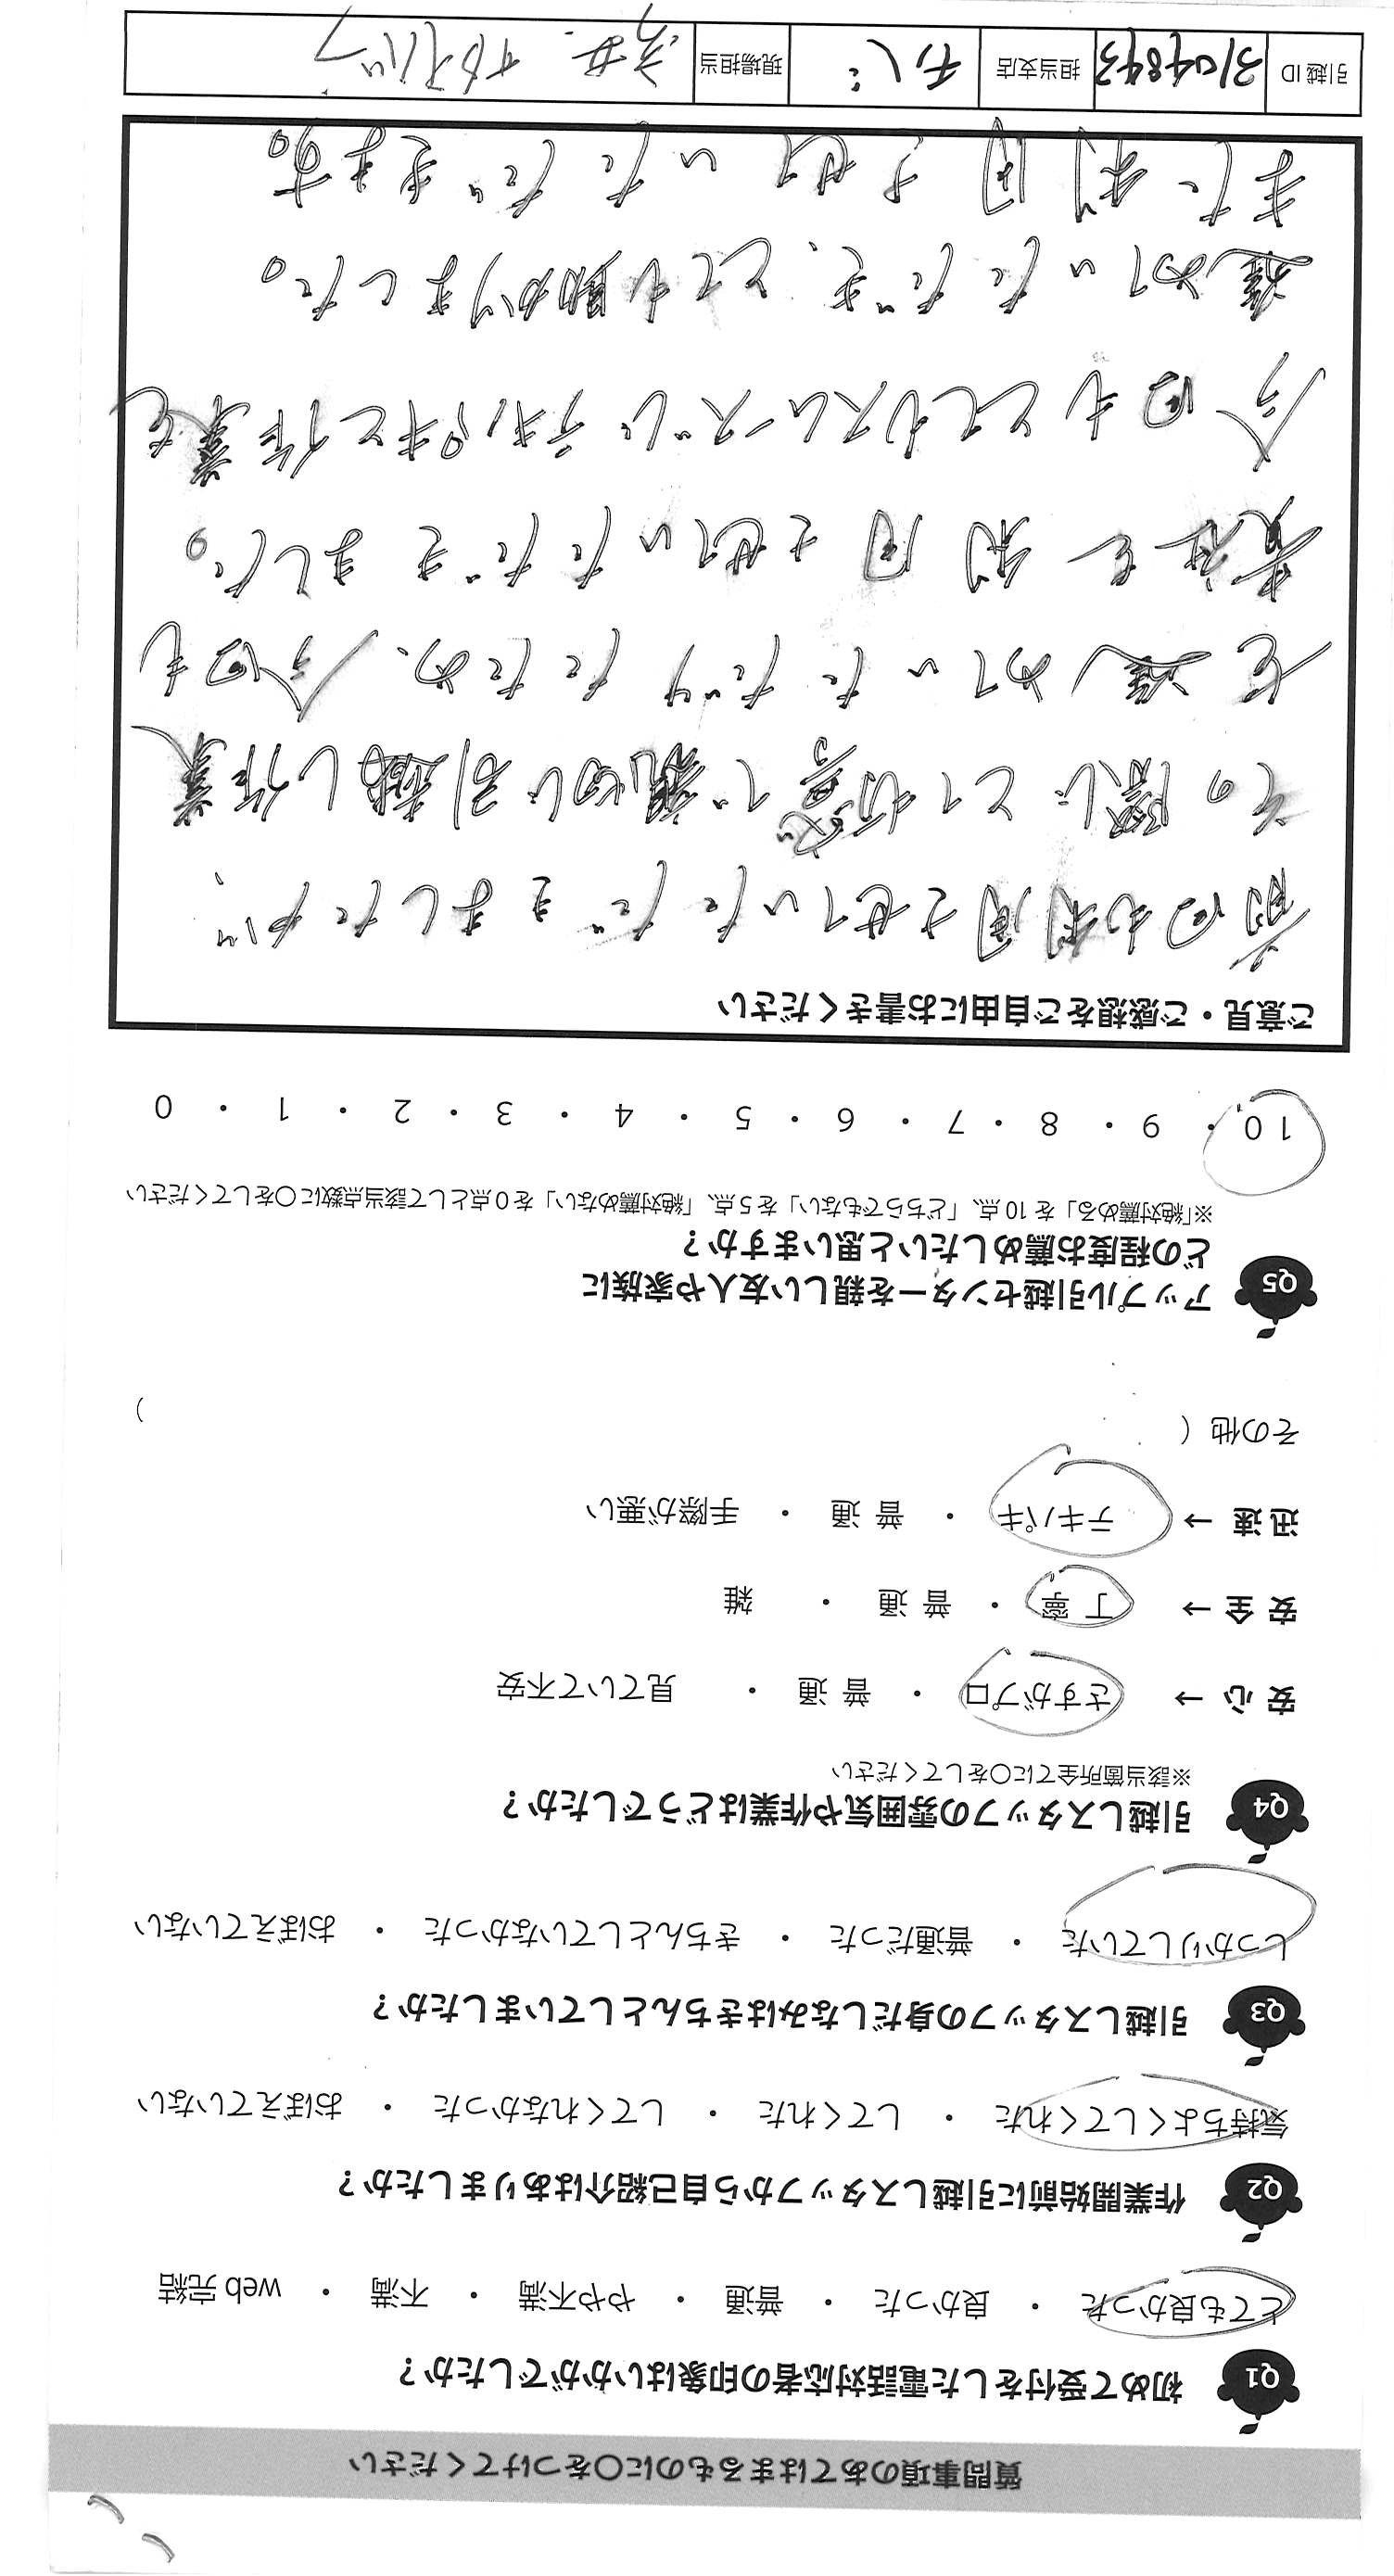 質問事項のあてはまるものに○をつけてください
Q1 初めて受付をした電話対応者の印象はいかがでしたか？
とても良かった ・ 良かった ・ 普通 ・ やや不満 ・ 不満 ・ web 完結
Q2 作業開始前に引越しスタッフから自己紹介はありましたか？
気持ちよくしてくれた ・ してくれた ・ してくれなかった ・ おぼえていない
Q3 引越しスタッフの身だしなみはきちんとしていましたか？
しっかりしていた ・ 普通だった ・ きちんとしていなかった ・ おぼえていない
Q4 引越しスタッフの雰囲気や作業はどうでしたか？
※該当箇所全てに○をしてください
安 心 → さすがプロ ・ 普 通 ・ 見ていて不安
安 全 → 丁 寧 ・ 普 通 ・ 雑
迅 速 → テキパキ ・ 普 通 ・ 手際が悪い
その他（ ）
Q5 アップル引越センターを親しい友人や家族に
どの程度お薦めしたいと思いますか？
※「絶対薦める」を 10 点、「どちらでもない」を 5 点、「絶対薦めない」を 0 点として該当点数に○をしてください
10 ・ 9 ・ 8 ・ 7 ・ 6 ・ 5 ・ 4 ・ 3 ・ 2 ・ 1 ・ 0
ご意見・ご感想をご自由にお書きください
前回も利用させていただきましたが、
その際にとても親切に引越し作業
を進めていただけたため、今回も
貴社を利用させていただきました。
今回もとてもスムーズにテキパキと作業を
進めていただき、とても助かりました。
また利用させていただきます。
引越 ID 3104843 担当支店 現場担当